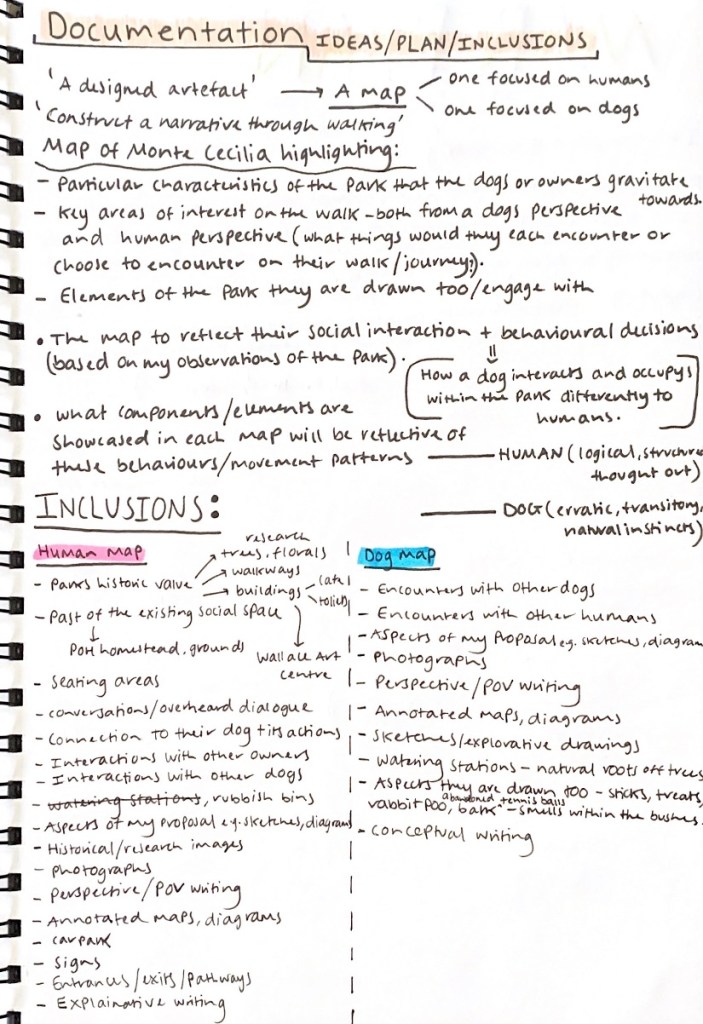 Documentation IDEAS/PLAN/INCLUSIONS
'A designed artefact' → A map one focused on humans
one focused on dogs
'Construct a narrative through walking'
Map of Monte Cecilia highlighting:
- Particular characteristics of the park that the dogs or owners gravitate towards.
- Key areas of interest on the walk - both from a dogs perspective
and human perspective (what things would they each encounter or
choose to encounter on their walk/journey?).
- Elements of the park they are drawn too/engage with
• The map to reflect their social interaction + behavioural decisions
(based on my observations of the park).
How a dog interacts and occupys
within the park differently to
humans.
• what components/elements are
showcased in each map will be reflective of
these behaviours/movement patterns
HUMAN (logical, structure
thought out)
DOG (erratic, transitory,
natural instincts)
INCLUSIONS:
Human map
- Parks historic value
research
trees, florals
walkways
buildings
- Past of the existing social space
homestead, grounds
Wallace Art
centre
- Seating areas
- conversations/overheard dialogue
- Connection to their dog + its actions
- Interactions with other owners
- Interactions with other dogs
- watering stations, rubbish bins
- Aspects of my proposal e.g. sketches, diagrams
- Historical/research images
- photographs
- perspective/POV writing
- Annotated maps, diagrams
- carpark
- signs
- Entrances/exits/pathways
- Explainative writing
Dog map
- Encounters with other dogs
- Encounters with other humans
- Aspects of my proposal e.g. sketches, diagram
- Photographs
- Perspective/POV writing
- Annotated maps, diagrams
- sketches/explorative drawings
- watering stations - natural roots off trees
- Aspects they are drawn too - sticks, treats,
abandoned tennis balls
rabbit poo, bark - smells within the bushes.
- conceptual writing